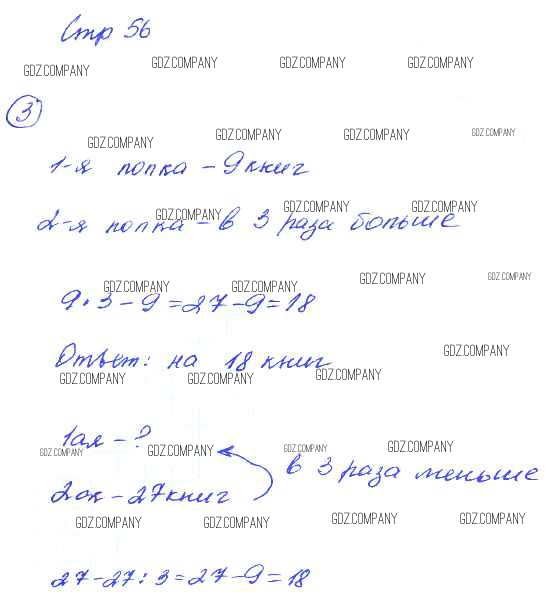 Стр 56
GDZ.COMPANY GDZ.COMPANY GDZ.COMPANY GDZ.COMPANY
3
GDZ.COMPANY GDZ.COMPANY GDZ.COMPANY GDZ.COMPANY
1-я полка - 9 книг
GDZ.COMPANY GDZ.COMPANY GDZ.COMPANY
2-я полка - в 3 раза больше
GDZ.COMPANY GDZ.COMPANY GDZ.COMPANY GDZ.COMPANY
9·3-9=27-9=18
Ответ: на 18 книг
GDZ.COMPANY GDZ.COMPANY GDZ.COMPANY GDZ.COMPANY
1ая - ?
GDZ.COMPANY GDZ.COMPANY GDZ.COMPANY GDZ.COMPANY
в 3 раза меньше
2ая - 27 книг
GDZ.COMPANY GDZ.COMPANY GDZ.COMPANY GDZ.COMPANY
27-27:3=27-9=18